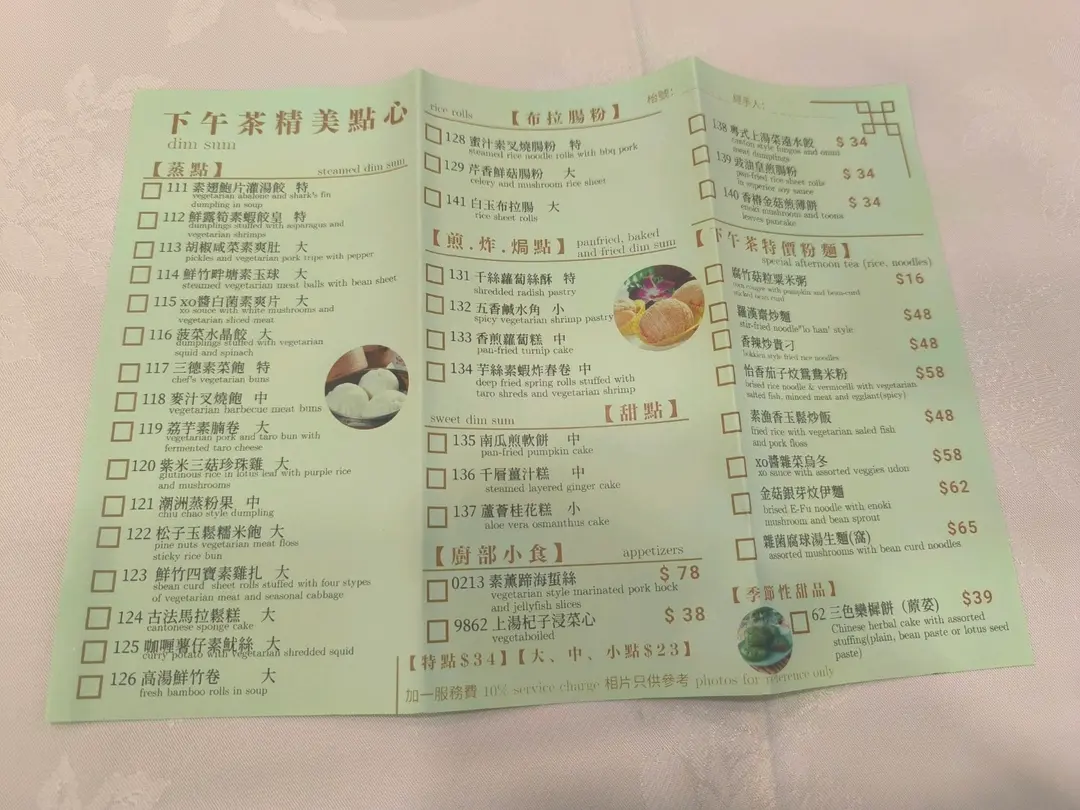 下午茶精美點心
dim sum
【蒸點】
steamed dim sum
111 素翅鮑片灌湯餃 特
vegetarian abalone and shark's fin
dumpling in soup
112 鮮露筍素蝦餃皇 特
dumplings stuffed with asparagus and
vegetarian shrimps
113 胡椒咸菜素爽肚 大
pickles and vegetarian pork tripe with pepper
114 鮮竹畔塘素玉球 大
steamed vegetarian meat balls with bean sheet
115 xo醬白菌素爽片 大
xo souce with white mushrooms and
vegetarian sliced meat
116 菠菜水晶餃 大
dumplings stuffed with vegetarian
squid and spinach
117 三德素菜飽 特
chef's vegetarian buns
118 麥汁叉燒飽 中
vegetarian barbecue meat buns
119 荔芋素腩卷 大
vegetarian pork and taro bun with
fermented taro cheese
120 紫米三菇珍珠雞 大
glutinous rice in lotus leaf with purple rice
and mushrooms
121 潮洲蒸粉果 中
chiu chao style dumpling
122 松子玉鬆糯米飽 大
pine nuts vegetarian meat floss
sticky rice bun
123 鮮竹四寶素雞扎 大
sbean curd sheet rolls stuffed with four stypes
of vegetarian meat and seasonal cabbage
124 古法馬拉鬆糕 大
cantonese sponge cake
125 咖喱薯仔素魷絲 大
curry potato with vegetarian shredded squid
126 高湯鮮竹卷 大
fresh bamboo rolls in soup
rice rolls
【布拉腸粉】
128 蜜汁素叉燒腸粉 特
steamed rice noodle rolls with bbq pork
129 芹香鮮菇腸粉 大
celery and mushroom rice sheet
141 白玉布拉腸 大
rice sheet rolls
【煎.炸.焗點】
panfried, baked
and fried dim sum
131 千絲蘿蔔絲酥 特
shredded radish pastry
132 五香鹹水角 小
spicy vegetarian shrimp pastry
133 香煎蘿蔔糕 中
pan-fried turnip cake
134 芋絲素蝦炸春卷 中
deep fried spring rolls stuffed with
taro shreds and vegetarian shrimp
sweet dim sum
【甜點】
135 南瓜煎軟餅 中
pan-fried pumpkin cake
136 千層薑汁糕 中
steamed layered ginger cake
137 蘆薈桂花糕 小
aloe vera osmanthus cake
【廚部小食】
appetizers
0213 素薰蹄海蜇絲 $78
vegetarian style marinated pork hock
and jellyfish slices
9862 上湯杞子浸菜心 $38
vegetaboiled
【特點$34】【大、中、小點$23】
加一服務費 10% service charge 相片只供參考 photos for reference only
枱號：
經手人：
138 粵式上湯菜遠水餃 $34
canton style fungus and
meat dumplings
139 豉油皇煎腸粉 $34
pan-fried rice sheet rolls
in superior soy sauce
140 香椿金菇煎薄餅 $34
enoki mushroom and toona
leaves pancake
【下午茶特價粉麵】
special afternoon tea (rice, noodles)
腐竹菇粒粟米粥 $16
羅漢齋炒麵 $48
stir-fried noodle"lo han' style
香辣炒貴刁 $48
hokkien style fried rice noodles
怡香茄子炆鴛鴦米粉 $58
brised rice noodle & vermicelli with vegetarian
salted fish, minced meat and eggplant(spicy)
素漁香玉鬆炒飯 $48
fried rice with vegetarian saled fish
and pork floss
xo醬雜菜烏冬 $58
xo sauce with assorted veggies udon
金菇銀芽炆伊麵 $62
brised E-Fu noodle with enoki
mushroom and bean sprout
雜菌腐球湯生麵(窩) $65
assorted mushrooms with bean curd noodles
【季節性甜品】
62 三色欒樨餅 (蔴荽) $39
Chinese herbal cake with assorted
stuffing(plain, bean paste or lotus seed
paste)